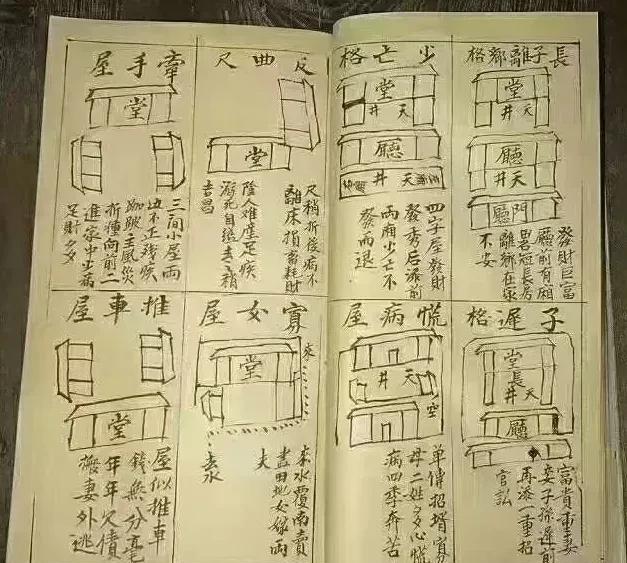 長子離鄉格
堂
天井
廳
天井
門廳
發財巨富
廳前有廂
長房
離鄉在家
不安
少亡格
堂
天井
廳
天井
四字屋發財
發秀后添前
兩廂少亡不
發而退
反曲尺
堂
尺稍折後病不
離床損畜耗財
陰人难產足疾
溺死自缢去稍
吉昌
牽手屋
堂
三間小屋兩
边不正残疾
跏跛主風災
折種向前二
進家中少病
足財多
子遲格
堂
長
天井
廳
富貴重妻
妾子孫遲前
再添一重招
官訟
慌病屋
天井
空
單傳招壻寡
母二姓多心慌
病四季奔苦
寡女屋
堂
來
來水覆南賣
盡田地女嫁兩
夫
去水
推車屋
堂
屋似推車
錢無分毫
年年欠債
妻外逃